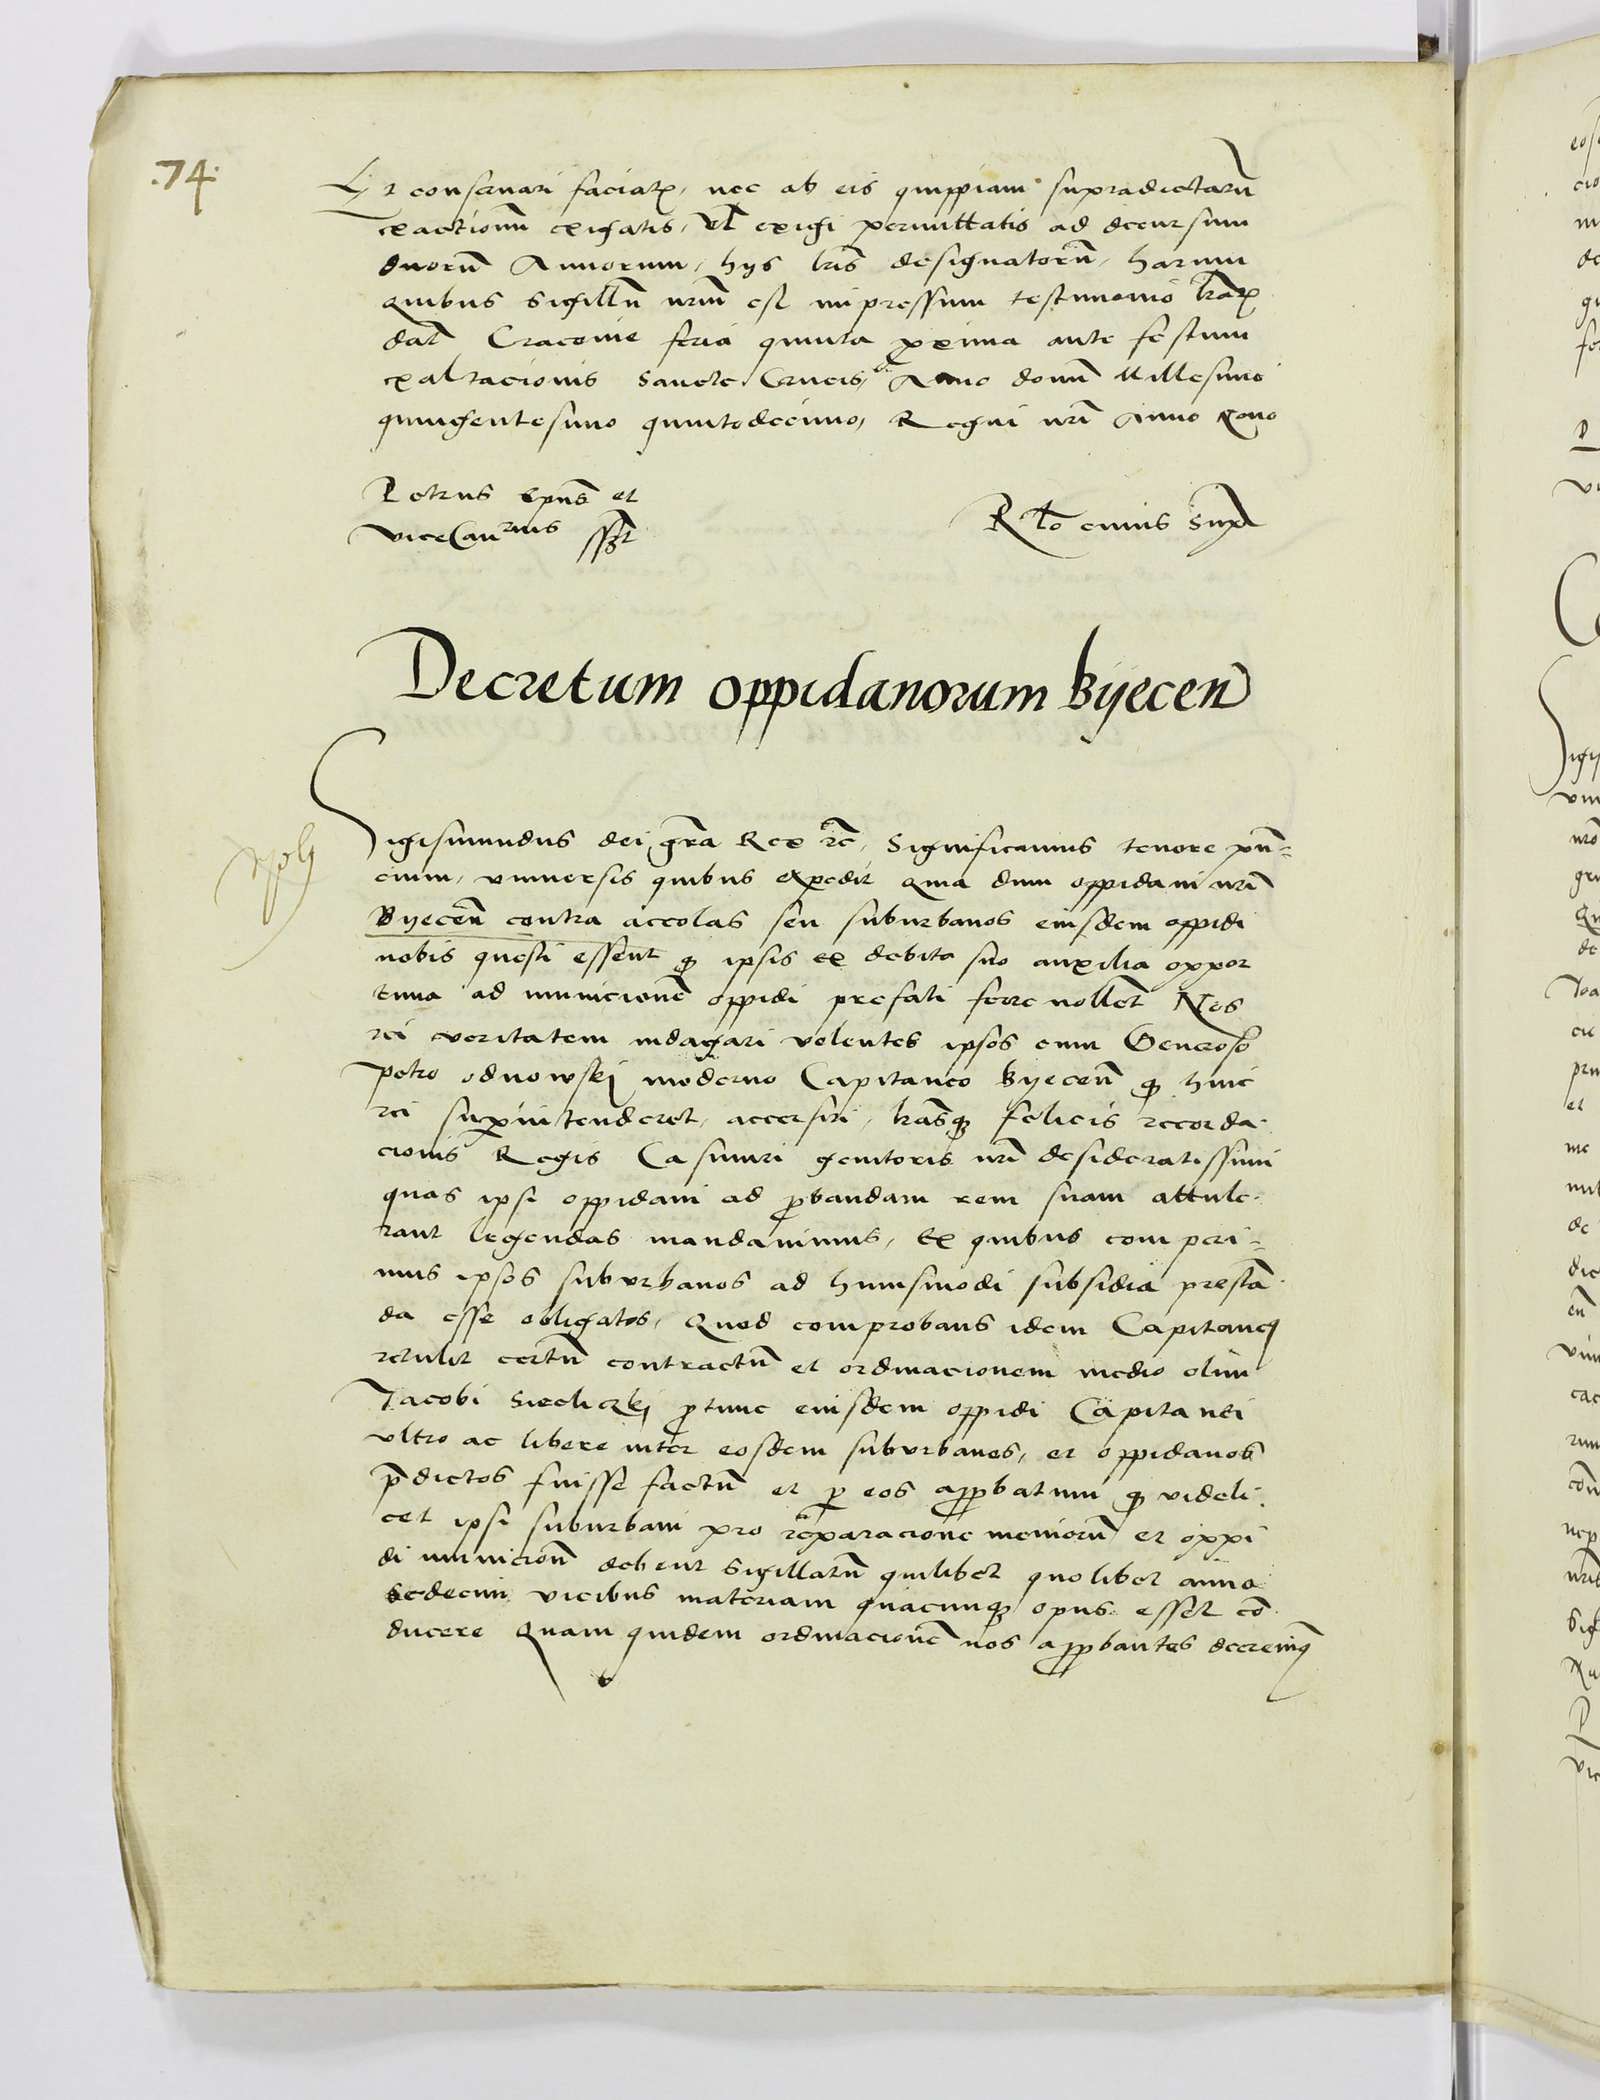 .74.
Et conservari faciatis, nec ab eis quippiam supradictarũ
exactionũ exigatis, vl exigi permittatis ad decursum
duorũ Annorum, hys lris designatorũ, harum
quibus sigillũ nrũ est impressum testimonio lrarũ
datũ Cracovie feria quinta proxima ante festum
exaltacionis sancte Crucis, Anno domini Millesimo
quingentesimo quintodecimo, Regni nri Anno Nono
Petrus Epũs et
viceCancrius sszt
Rlo eiuis supra
Decretum oppidanorum Byecen
Sigismundus dei gra Rex rc, Significamus tenore pñ=
cium, universis quibus expedit quia dum oppidani nri
Byeceñ contra accolas seu suburbanos eiusdem oppidi
nobis questi essent qp ipsis ex debito suo auxilia oppor
tuna ad municionẽ oppidi prefati ferre nollent Nos
rei veritatem indagari volentes ipsos cum Generoso
petro odnowskj moderno Capitaneo Byeceñ qp huic
rei superintenderet, accersiri, lrasque felicis recorda
cionis Regis Casimiri genitoris nri desideratissimi
quas ipsi oppidani ad probandam rem suam attule
rant legendas mandavimus, Ex quibus comperi=
mus ipsos suburbanos ad huiusmodi subsidia prestã
da esse obligatos, Quod comprobans idem Capitaneus
retulit certũ contractũ et ordinacionem medio olim
Jacobi Siecliczkj protunc eiusdem oppidi Capitanei
ultro ac libere inter eosdem suburbanos, et oppidanos
predictos fuisse factũ et per eos approbatum qp videli
cet ipsi suburbani pro reparacione meniorũ et oppi
di municioñ debent sigillatim quilibet quolibet anno
sedecim vicibus materiam quacunque opus esset cõ
ducere Quam quidem ordinacionẽ nos approbantes decrevimus